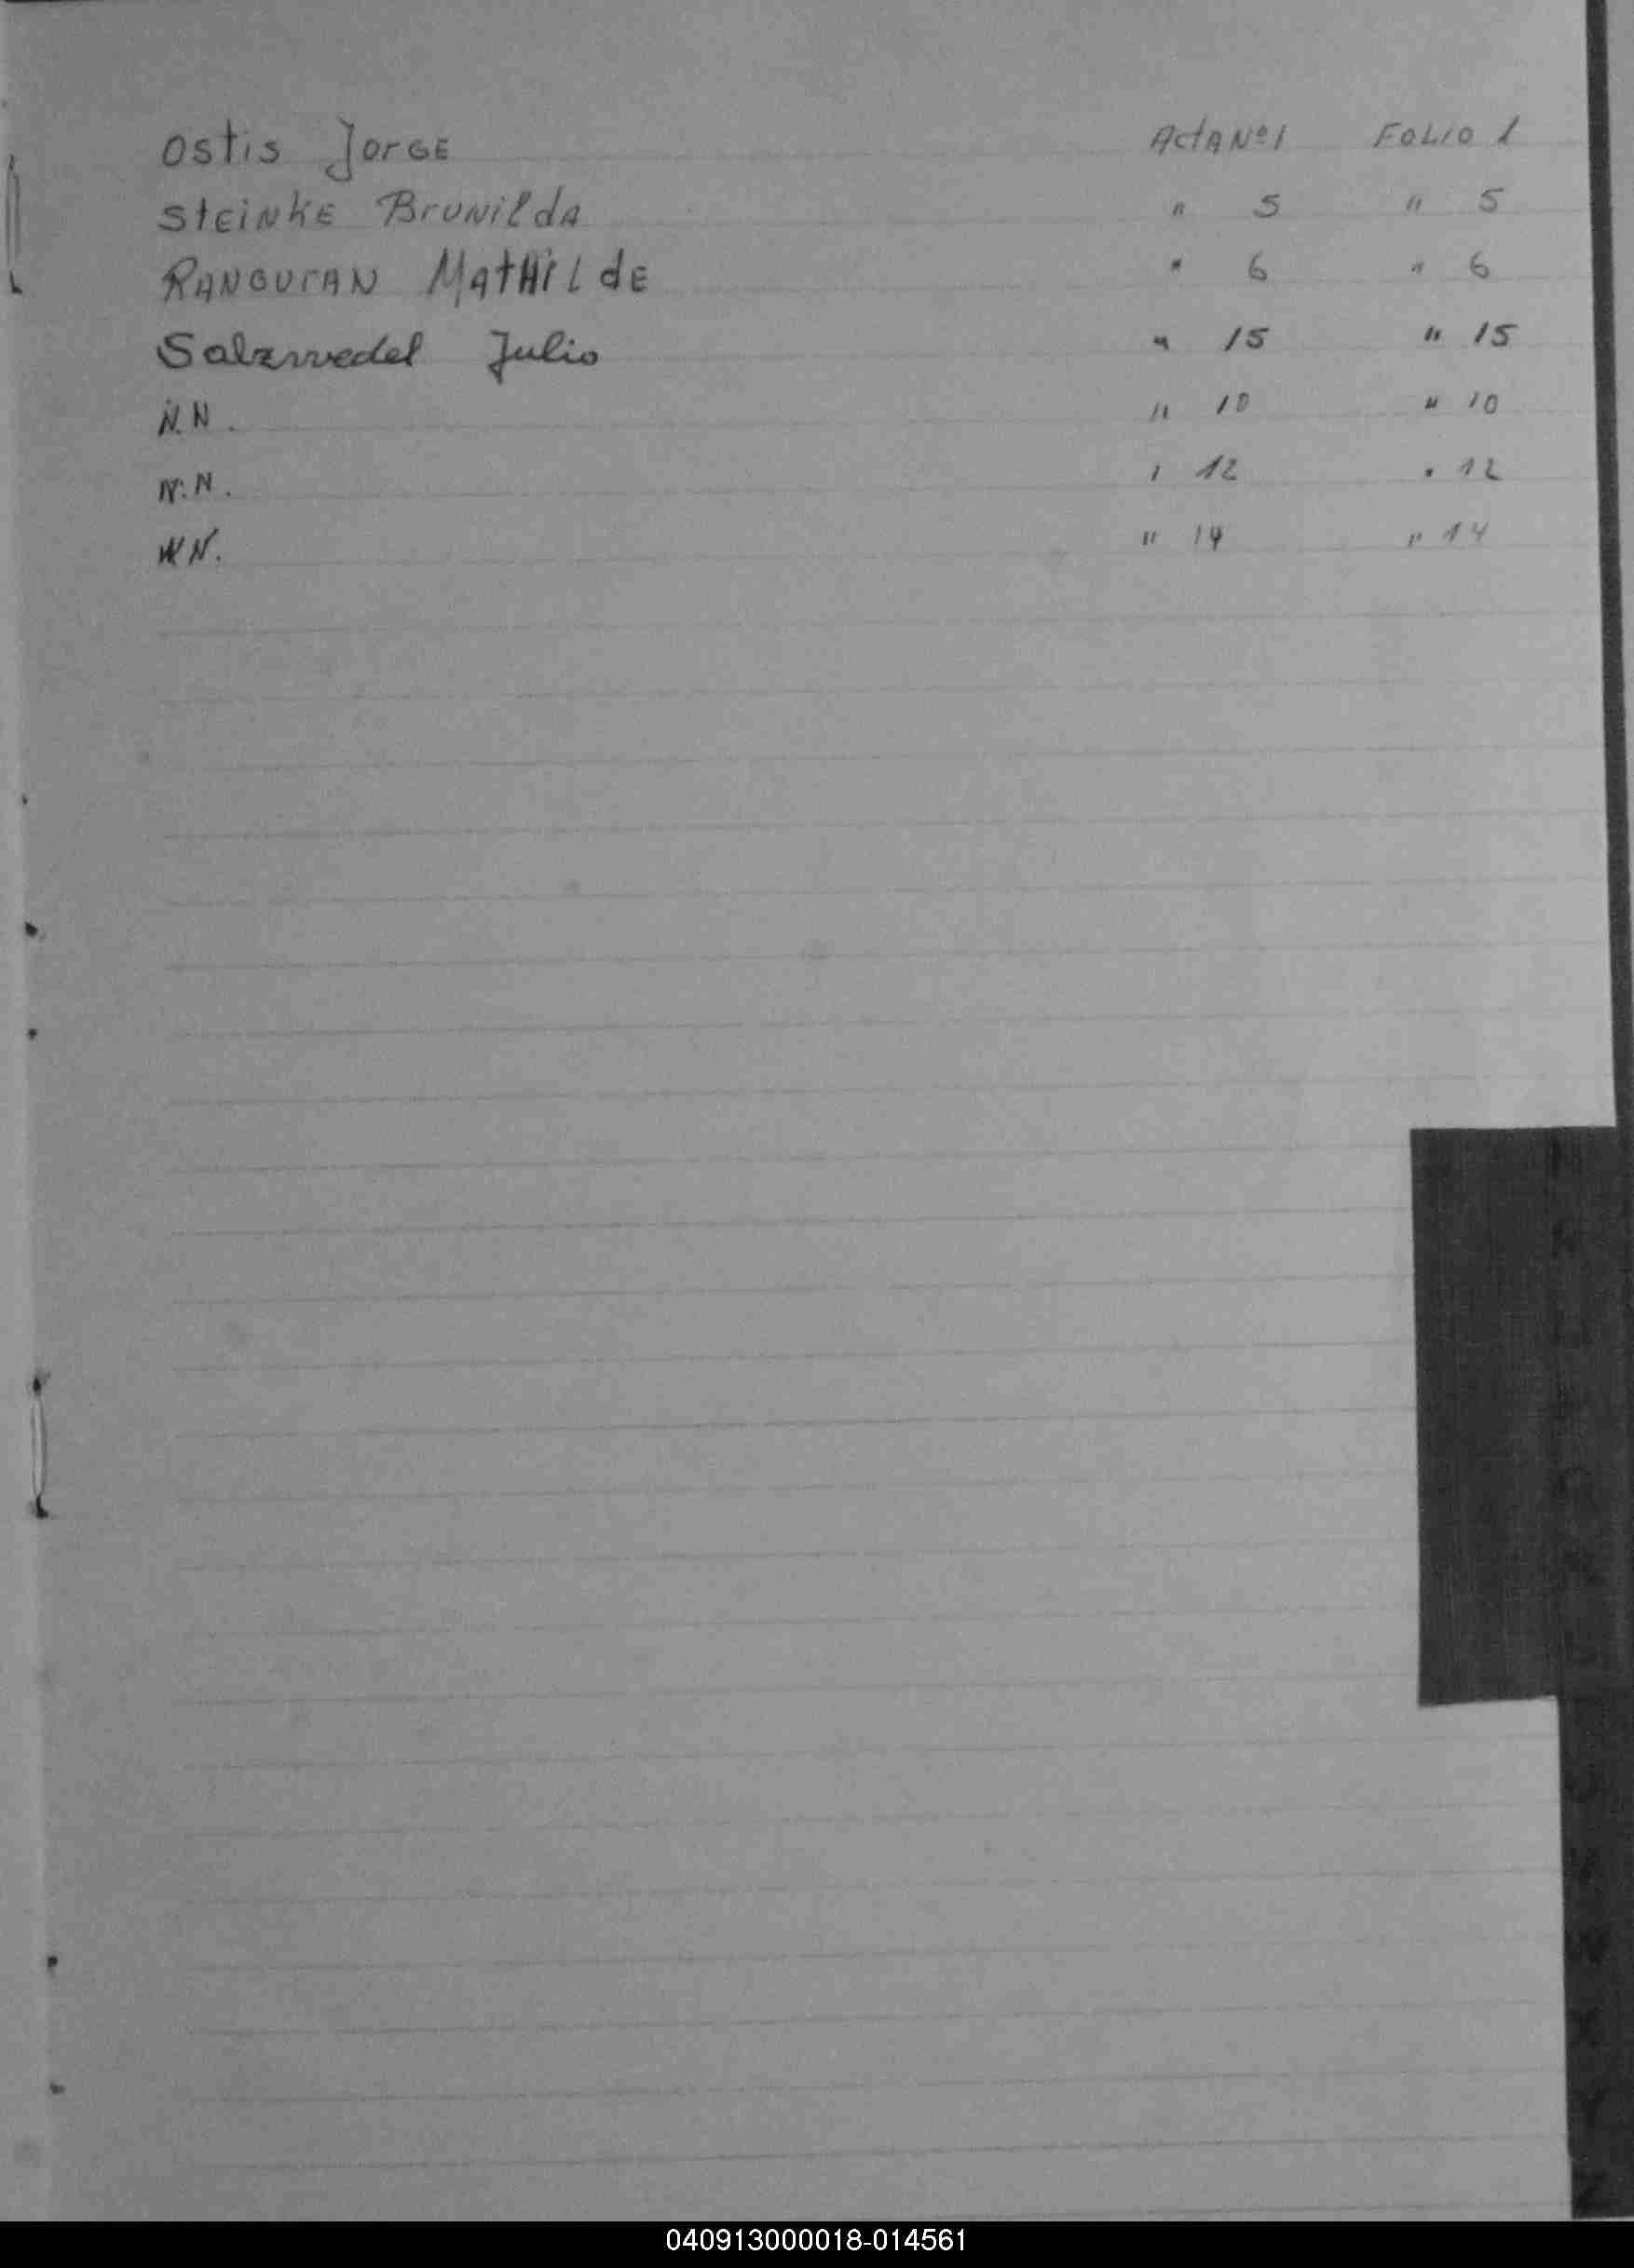 Ostis Jorge ActA Nº 1 Folio 1
Steinke Brunilda " 5 " 5
Mathilde " 6 " 6
Salzwedel Julio " 15 " 15
N.N. " 10 " 10
N.N. " 12 " 12
N.N. " 14 " 14
040913000018-014561